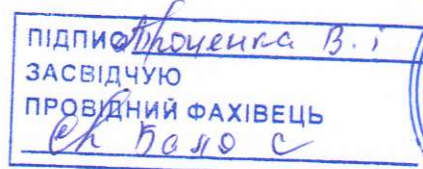 ПІДПИС Проценка В. і
ЗАСВІДЧУЮ
ПРОВІДНИЙ ФАХІВЕЦЬ